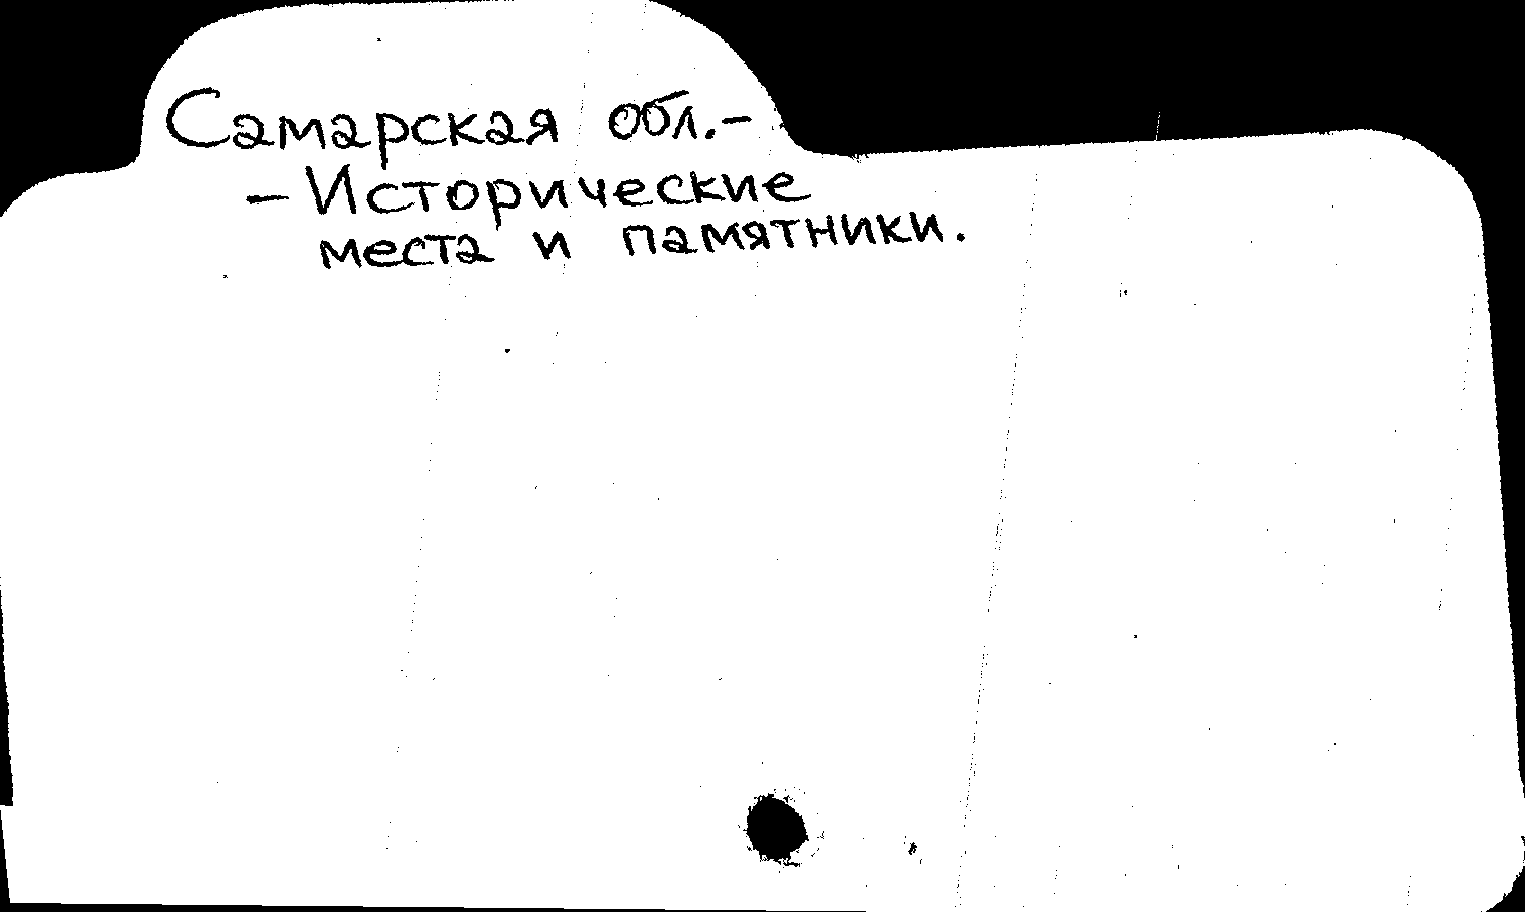 Самарская обл.-
- Исторические
места и памятники.